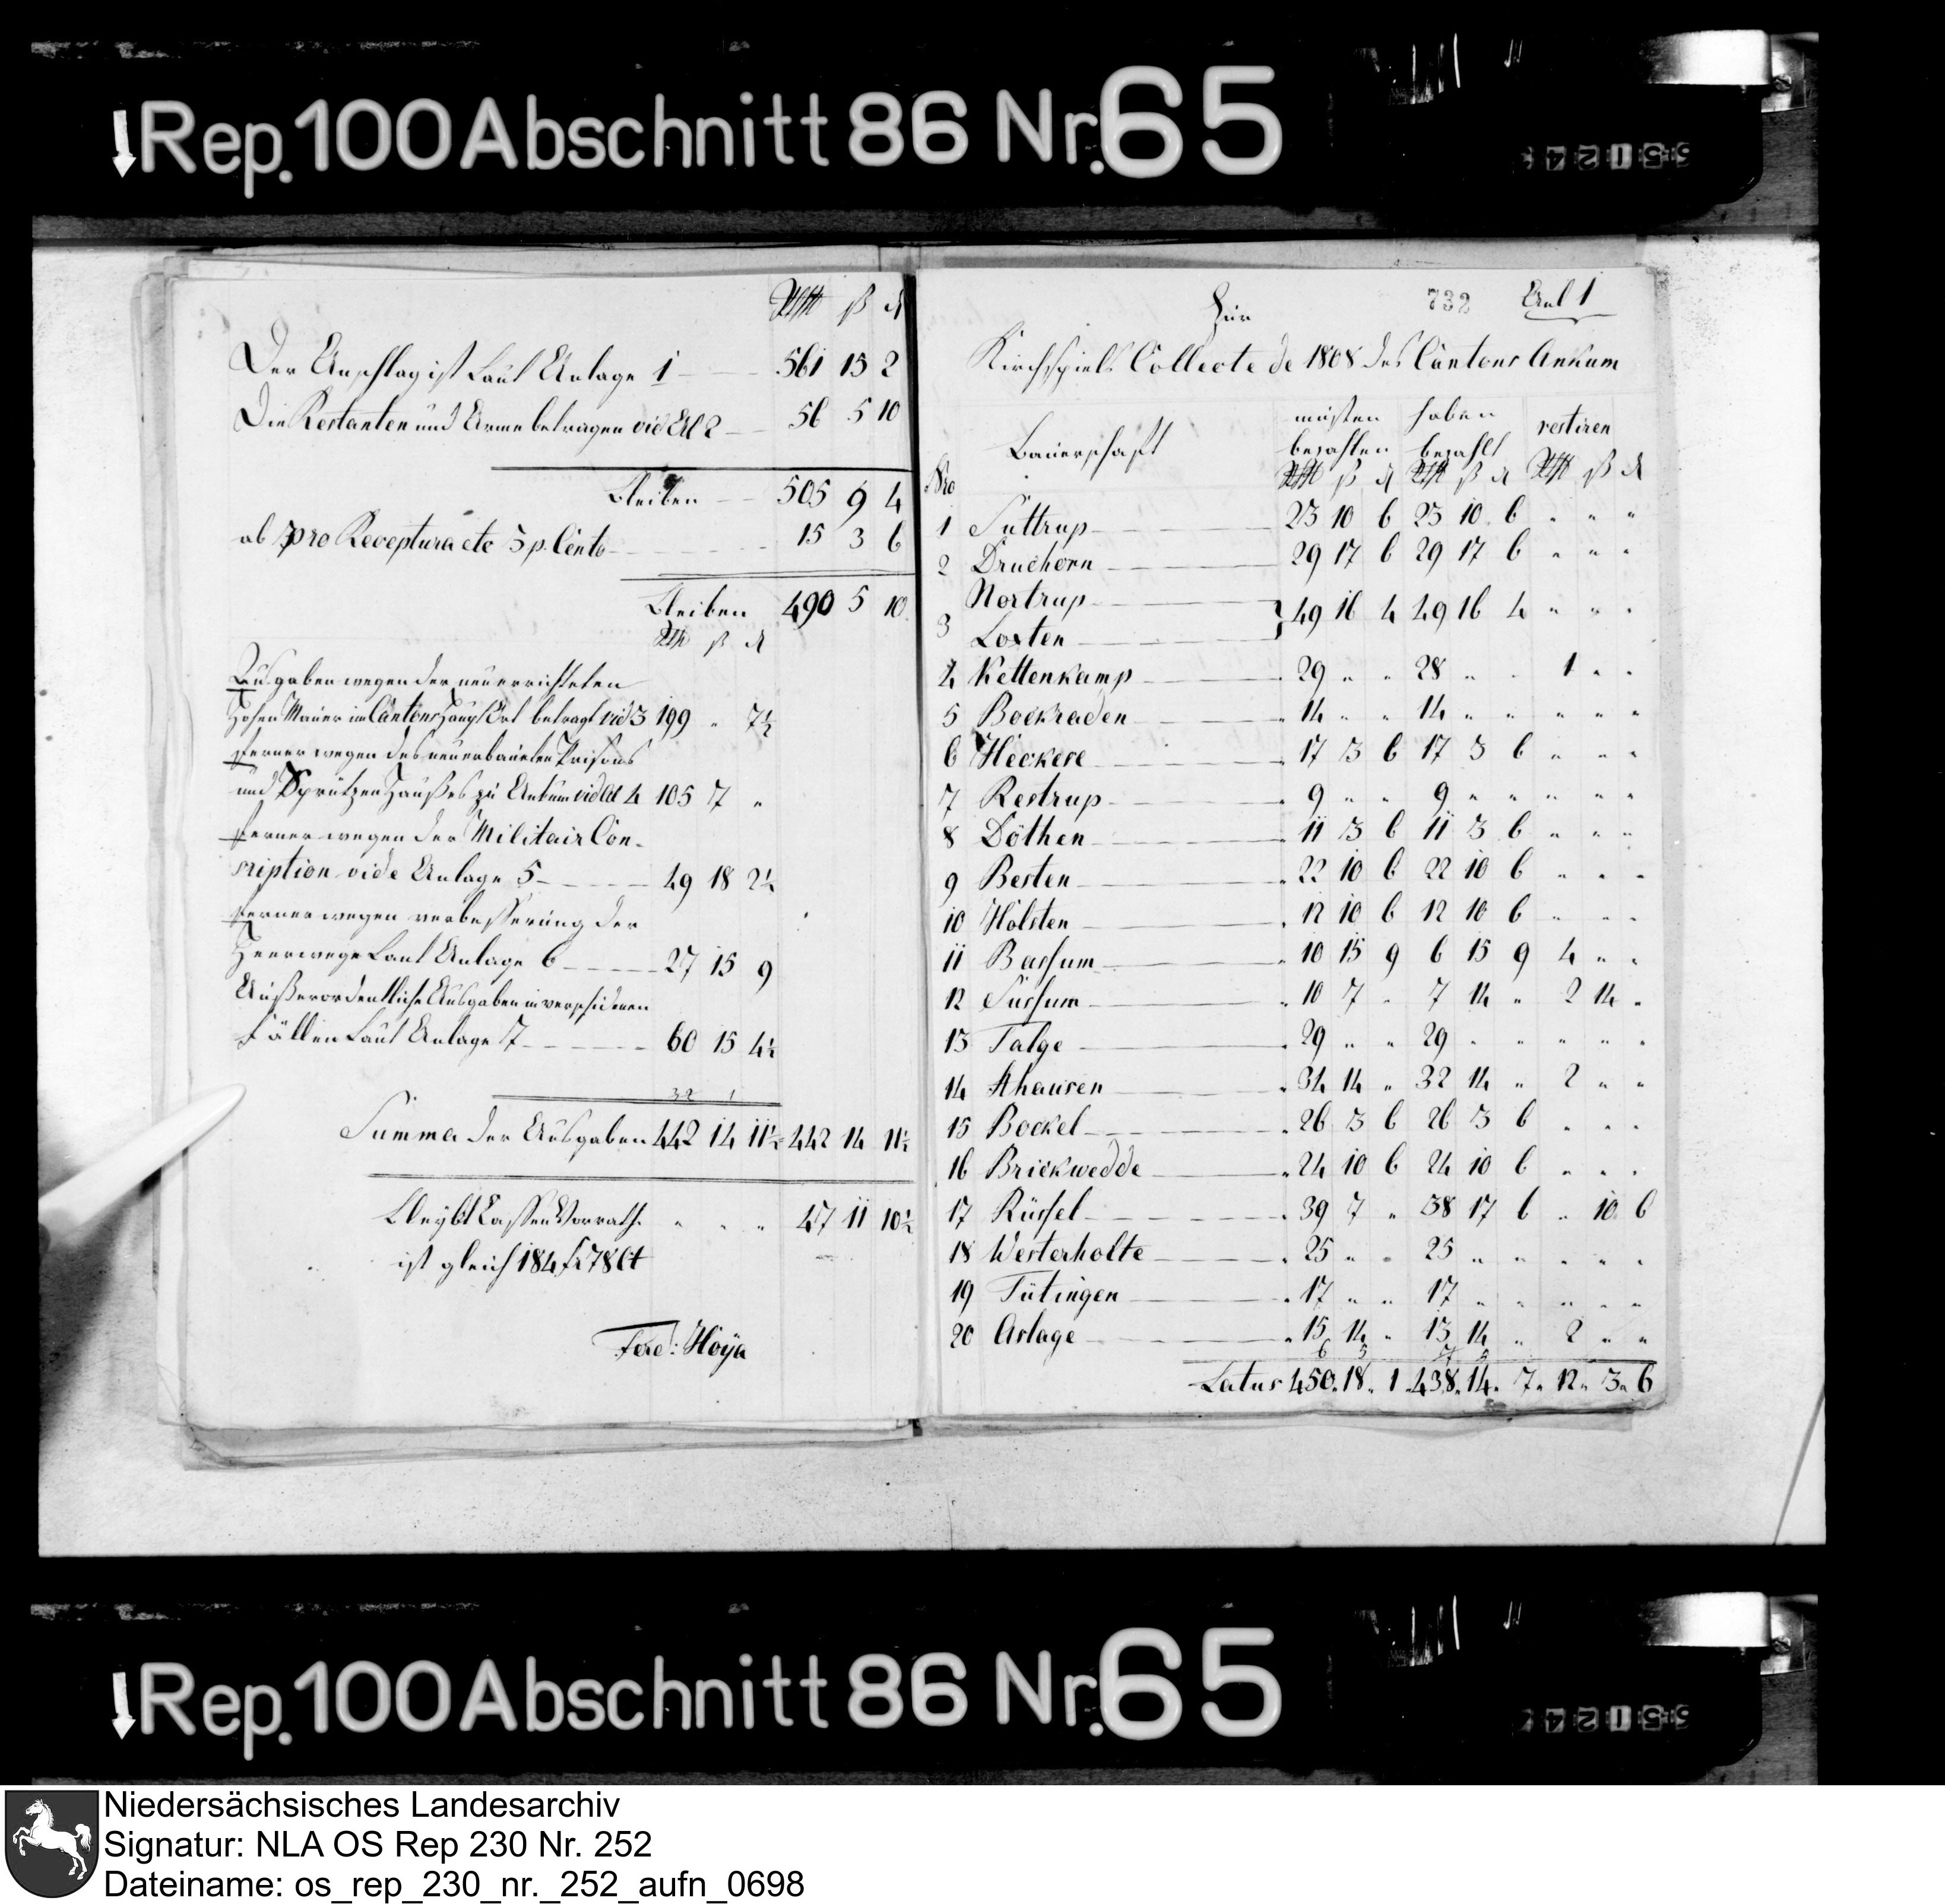 Rep. 100 Abschnitt 86 Nr. 65
Rthr ß d
Der Anschlag ist Laut Anlage 1 561 13 2
Die Restanten und Arme betragen vid Al 2 56 5 10
bleiben 505 9 4
ab pro Receptura etc 3 p. Cento 15 3 6
bleiben 490 5 10
Rthr ß d
Ausgaben wegen der neuerrichteten
hohen Mauer im Cantons Haupt Ort betragt vid 3 199 " 7½
ferner wegen des neuerbaueten Prisons
und Sprützen Haußes zu Ankum vid Al 4 105 7 "
ferner wegen der Militair Con-
scription vide Anlage 5 49 18 2½
ferner wegen verbesserung der
Heerwege Laut Anlage 6 27 15 9
Außerordentliche Ausgaben in verschidenen
Fällen Laut Anlage 7 60 15 4½
32 1
Summa der Ausgaben 442 14 11½ 442 14 11½
bleybt Cassen Vorrath " " " 47 11 10½
ist gleich 184 fr 78 Ct
Ferd: Hoÿa
732 Anl 1
Zur
Kirchspiels Collecte de 1808 des Cantons Ankum
Nro Bauerschaft müsten bezahlen haben bezahlt restiren
Rthr ß d Rthr ß d Rthr ß d
1 Suttrup 23 10 6 23 10 6 " " "
2 Druchorn 29 17 6 29 17 6 " " "
Nortrup
3 Loxten } 49 16 4 49 16 4 " " "
4 Kettenkamp 29 " " 28 " " 1 " "
5 Bockraden 14 " " 14 " " " " "
6 Heckere 17 3 6 17 3 6 " " "
7 Restrup 9 " " 9 " " " " "
8 Döthen 11 3 6 11 3 6 " " "
9 Besten 22 10 6 22 10 6 " " "
10 Holsten 12 10 6 12 10 6 " " "
11 Bassum 10 15 9 6 15 9 4 " "
12 Süssum 10 7 " 7 14 " 2 14 "
13 Talge 29 " " 29 " " " " "
14 Ahausen 34 14 " 32 14 " 2 " "
15 Bockel 26 3 6 26 3 6 " " "
16 Brickwedde 24 10 6 24 10 6 " " "
17 Rüssel 39 7 " 38 17 6 " 10 6
18 Westerholte 25 " " 25 " " " " "
19 Tütingen 17 " " 17 " " " " "
20 Aslage 15 14 " 13 14 " 2 " "
Latus 450. 18. 1. 438. 14. 7. 12. 3. 6
Rep. 100 Abschnitt 86 Nr. 65
Niedersächsisches Landesarchiv
Signatur: NLA OS Rep 230 Nr. 252
Dateiname: os_rep_230_nr._252_aufn_0698